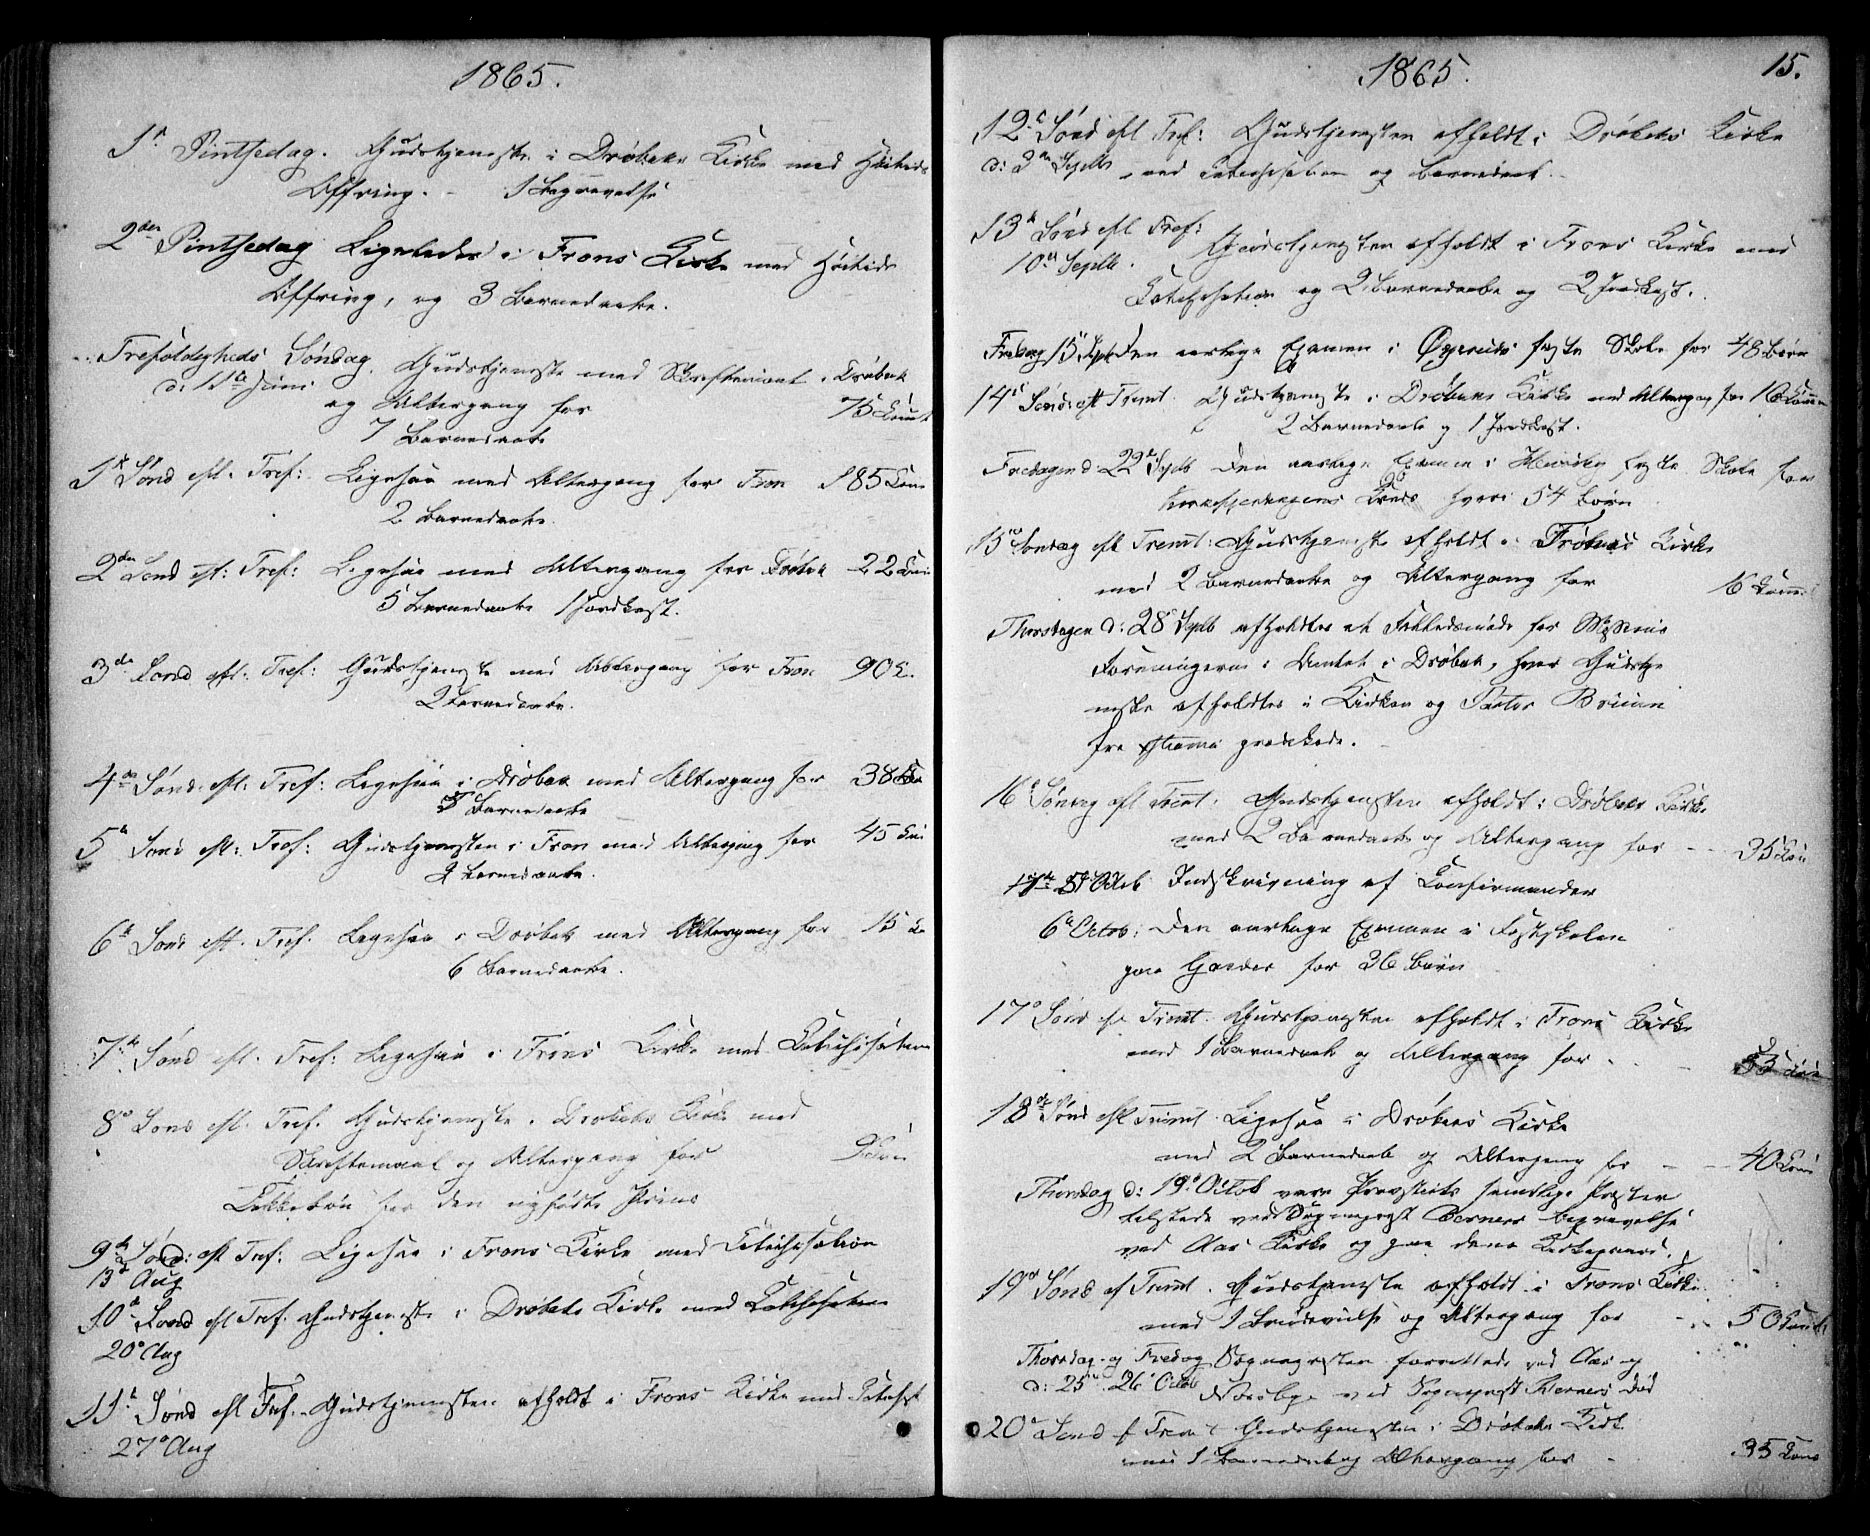 1865.
1ste Pintsedag. Gudstjeneste i Drøbaks Kirke med Høitids
Offring. - 1 Begravelse
2den Pintsedag Ligeledes i Frons Kirke med Høitids
Offring, og 3 Barnedaabe.
Trefoldigheds Søndag. Gudstjeneste med Skriftemaal i Drøbak
d: 11te Juni og Altergang for 75 Comt
7 Barnedaabe
1ste Sønd eft. Tref: Ligesaa med Altergang for Fron 185 Com
2 Barnedaabe.
2den Sond eft: Tref: Ligesaa med Altergang for Drøbak 22 Com
5 Barnedaabe 1 Jordkast.
3die Sond eft: Tref: Gudstjeneste med Altergang for Fron 90 C.
2 Barnedaabe.
4de Sønd. eft: Tref: Ligesaa i Drøbak med Altergang for 38 Com
Barnedaabe
5te Sond eft: Tref: Gudstjenesten i Fron med Altergang for 45 Com
2 Barnedaabe.
6te Sond eft. Tref. Ligesaa i Drøbak med Altergang for 15 Co
6 Barnedaabe.
7de Sønd eft. Tref: Ligesaa i Frons Kirke med Catechisation
8de Sond eft. Tref. Gudstjeneste i Drøbaks Kirke med
Skriftemaal og Altergang for Com
Takkebøn for den nyfødte Prins
9de Sønd: eft Tref: Ligesaa i Frons Kirke med Catechisation
13de Aug
10de Sond eft Tref. Gudstjeneste i Drøbaks Kirke med Catechisation
20de Aug
11te Sønd eft Tref. Gudstjenesten afholdt i Frons Kirke med Catechist
27de Aug
1865. 15.
12te Sønd eft Tref: Gudstjenesten afholdt i Drøbaks Kirke
d: 3die Septb med Catechisation og Barnedaab.
13de Sønd eft Tref: Gudstjenesten afholdt i Frons Kirke med
10de Septb. Catechisation og 2 Barnedaabe og 2 Jordkast.
Fredag 15de Sept Den aarlige Examen i Øyeruds faste Skole for 48 Børn
14de Sønd: eft Trinit. Gudstjeneste i Drøbaks Kirke med Altergang for 16 Comm
2 Barnedaabe og 1 Jordkast.
Fredagen d: 22de Septb Den aarlige Examen i faste Skole for
Kreds hvori 54 Børn
15de Sondag eft Trinit: Gudstjeneste afholdt i Drøbaks Kirke
med 2 Barnedaabe og Altergang for 16 Comm
Thorsdagen d: 28de Septb afholdtes et Fælledsmøde for Missions
Foreningerne i Amtet i Drøbak, hvor Gudstje
neste afholdtes i Kirken og Pastor Bruun
fra prædikede.
16de Søndag eft Trinit: Gudstjenesten afholdt i Drøbaks Kirke
med 2 Barnedaabe og Altergang for - - 35 Com
Octob. Indskrivning af Confirmander
6te Octob: Den aarlige Examen i Fastskolen
paa Garder for 36 Børn
17de Sønd eft Trinit. Gudstjenesten afholdt i Frons Kirke
med 1 Barnedaab og Altergang for - - 53 Com
18de Sønd eft Trinit. Ligesaa i Drøbaks Kirke
med 2 Barnedaab og Altergang for - - 40 Com
Thorsdag d: 19de Octob vare Provstiets samtlige Præster
tilstede ved Sognepræst Berners Begravelse
ved Aas Kirke og paa dens Kirkegaard.
19de Sønd ef Trinit. Gudstjeneste afholdt i Frons Kirke
med 1 Brudevielse og Altergang for - - 50 Comm
Thorsdag og Fredag Sognepræsten forrettede ved Aas og
d: 25de 26de Octob Nordbye ved Sognepræst Berners Død
20de Sønd f Trinit Gudstjenesten i Drøbaks Kirk
med 1 Barnedaab og Altergang for - 35 Com